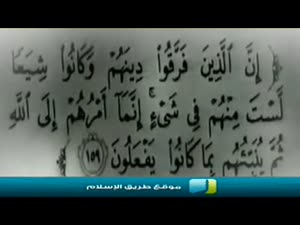 ﴿ إِنَّ الَّذِينَ فَرَّقُوا۟ دِينَهُمْ وَكَانُوا۟ شِيَعًا
لَّسْتَ مِنْهُمْ فِى شَىْءٍ ۚ إِنَّمَآ أَمْرُهُمْ إِلَى اللَّهِ
ثُمَّ يُنَبِّئُهُم بِمَا كَانُوا۟ يَفْعَلُونَ ١٥٩ ﴾
موقع طريق الإسلام